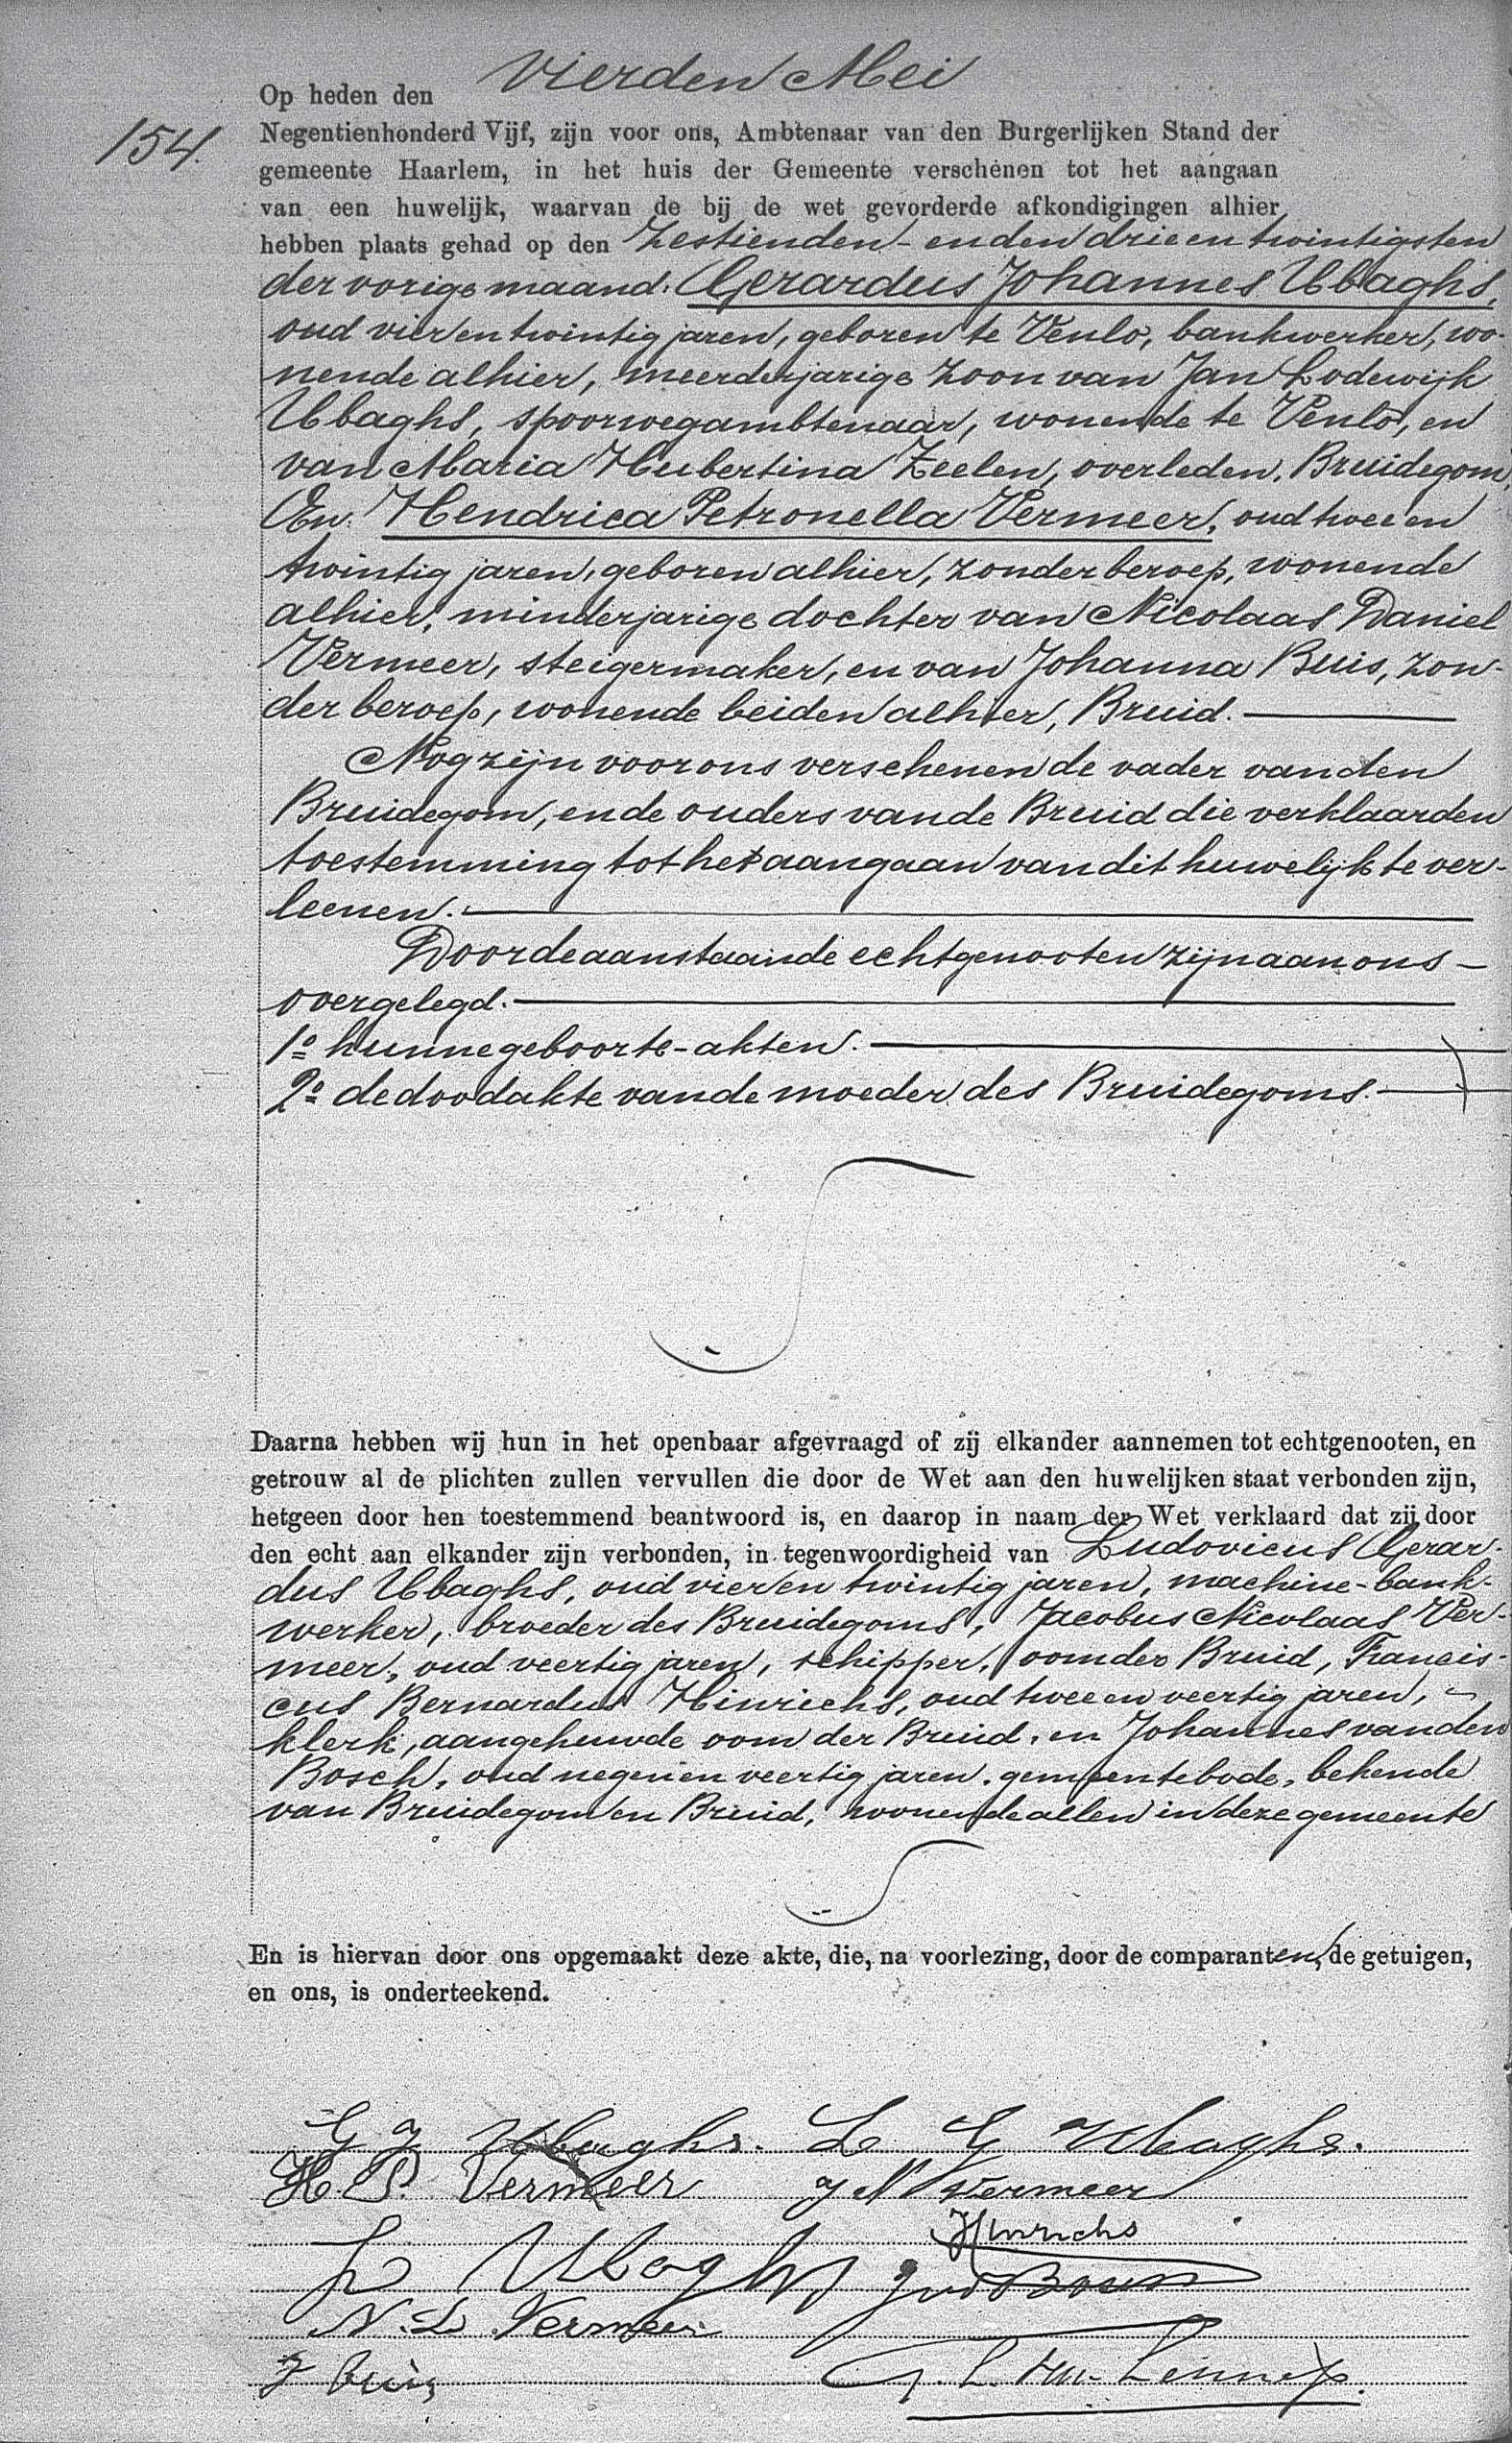 Op heden den Vierden Mei
154. Negentienhonderd Vijf, zijn voor ons, Ambtenaar van den Burgerlijken Stand der
gemeente Haarlem, in het huis der Gemeente verschenen tot het aangaan
van een huwelijk, waarvan de bij de wet gevorderde afkondigingen alhier
hebben plaats gehad op den zestienden- en den drie en twintigsten
der vorige maand. Gerardus Johannes Ubaghs,
oud vier en twintig jaren, geboren te Venlo, bankwerker, wo-
nende alhier, meerderjarige zoon van Jan Lodewijk
Ubaghs, spoorwegambtenaar, wonende te Venlo, en
van Maria Hubertina Zeelen, overleden, Bruidegom,
En Hendrica Petronella Vermeer, oud twee en
twintig jaren, geboren alhier, zonder beroep, wonende
alhier, minderjarige dochter van Nicolaas Daniel
Vermeer, steigermaker, en van Johanna Buis, zon-
der beroep, wonende beiden alhier, Bruid.
Nog zijn voor ons verschenen de vader van den
Bruidegom, en de ouders van de Bruid die verklaarden
toestemming tot het aangaan van dit huwelijk te ver-
leenen.
Door de aanstaande echtgenooten zijn aan ons
overgelegd.
1o hunne geboorte-akten.
2o de doodakte van de moeder des Bruidegoms.
Daarna hebben wij hun in het openbaar afgevraagd of zij elkander aannemen tot echtgenooten, en
getrouw al de plichten zullen vervullen die door de Wet aan den huwelijken staat verbonden zijn,
hetgeen door hen toestemmend beantwoord is, en daarop in naam der Wet verklaard dat zij door
den echt aan elkander zijn verbonden, in tegenwoordigheid van Ludovicus Gerar-
dus Ubaghs, oud vier en twintig jaren, machine-bank-
werker, broeder des Bruidegoms, Jacobus Nicolaas Ver-
meer, oud veertig jaren, schipper, oom der Bruid, Francis-
cus Bernardus Hinrichs, oud twee en veertig jaren,
klerk, aangehuwde oom der Bruid, en Johannes van den
Bosch, oud negen en veertig jaren, gemeentebode, bekende
van Bruidegom en Bruid, wonende allen in deze gemeente
En is hiervan door ons opgemaakt deze akte, die, na voorlezing, door de comparanten, de getuigen,
en ons, is onderteekend.
G J Ubaghs. L G Ubaghs.
H. P. Vermeer J N Vermeer
Hinrichs
L Ubaghs JvdBosch
N. D. Vermeer
J Buis